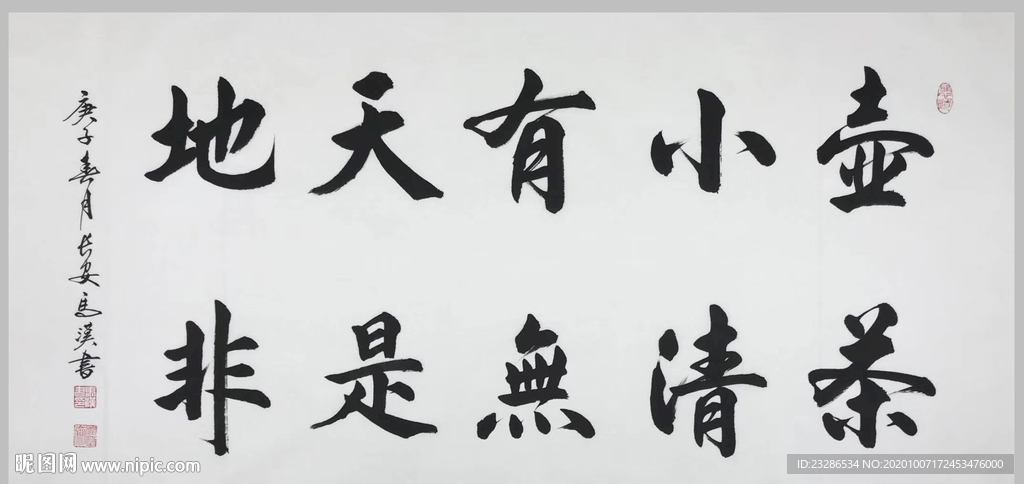 壶小有天地
茶清無是非
庚子春月长安馬漢書
昵图网 www.nipic.com
ID:23286534 NO:20201007172453476000